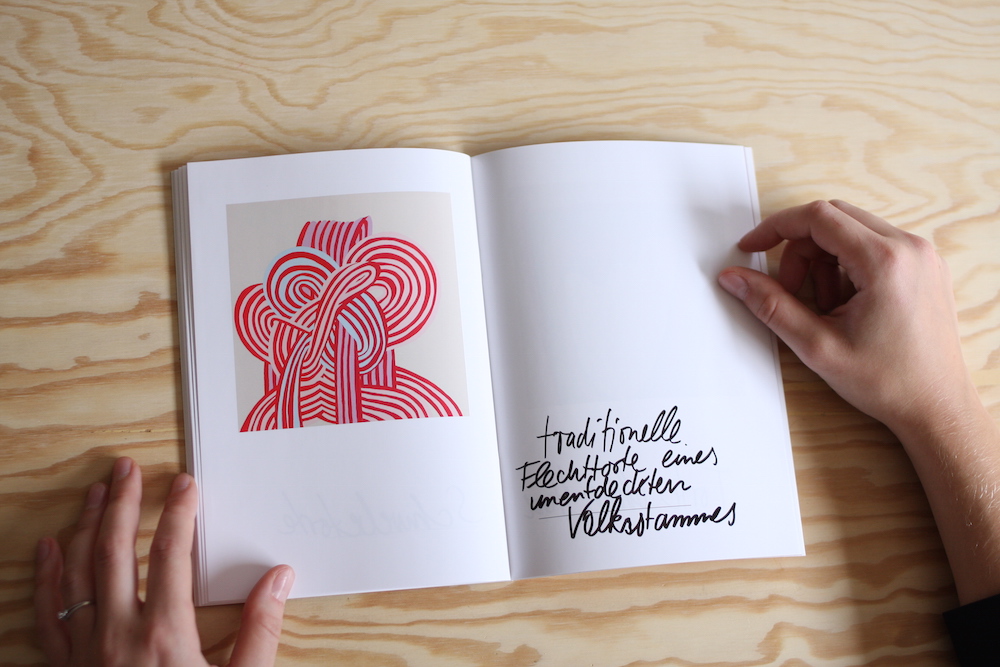 traditionelle
Flechttorte eines
unentdeckten
Volksstammes